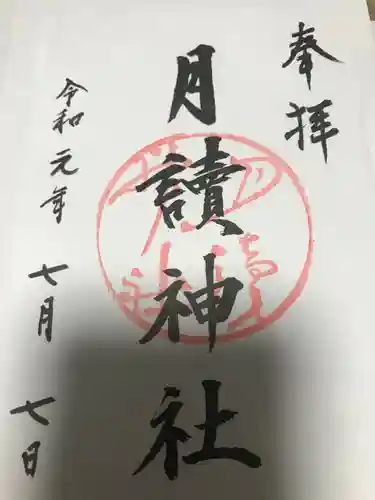 奉拝
月讀神社
令和元年七月七日